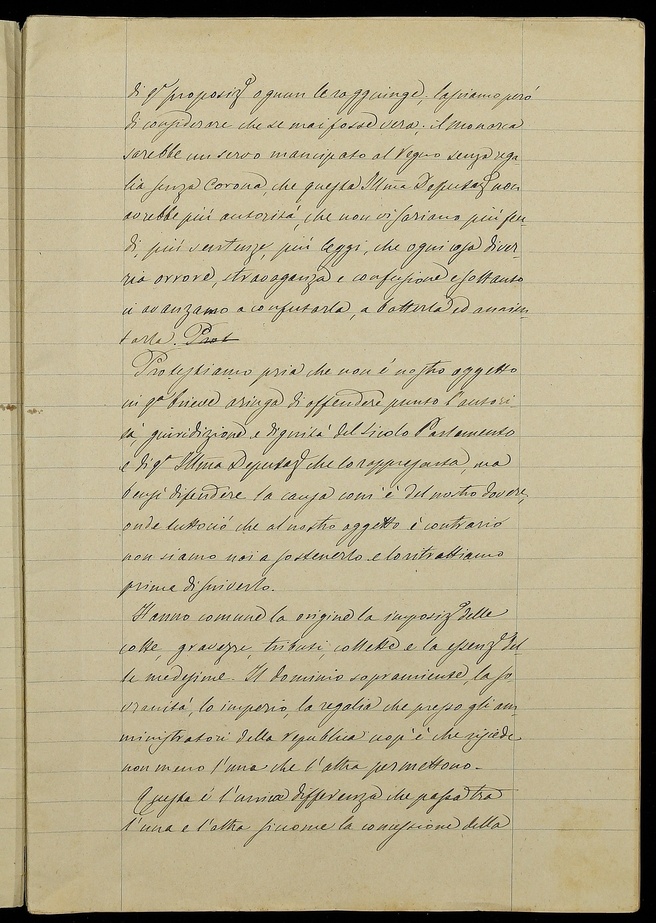 di q.ª proposiz.ᵉ ognun le raggiunge; lasciamo però
di considerare che se mai fosse vera; il monarca
sarebbe un servo mancipato al Regno senza rega
lia senza Corona, che questa Ill̃ma Deputaz.ᵉ non
avrebbe più autorità, che non vi sariano più feu-
di, più sentenze, più leggi, che ogni cosa diver-
ria orrore, stravaganza e confusione e soltanto
ci avanzamo a confutarla, a batterla ed annien
tarla. Prot
Protestiamo pria che non è nostro oggetto
in q.ª brieve aringa di offendere punto l'autori
tà, giurisdizione e dignità del Siculo Parlamento
e di q.ª Ill̃ma Deputaz.ᵉ che lo rappresenta, ma
bensì difendere la causa com'è del nostro dovere,
onde tuttociò che al nostro oggetto è contrario
non siamo noi a sostenerlo e lo ritrattiamo
prima di scriverlo.
Hanno comune la origine la imposiz.ᵉ delle
collte, gravezze, tributi, collette e la essenz.ᵉ del
le medesime. Il dominio sopraminente, la so
vranità, lo imperio, la regalia che presso gli am
ministratori della republica uop'è che risiede
non meno l'una che l'altra permettono.
Questa è l'unica differenza che passa tra
l'una e l'altra siccome la concessione della